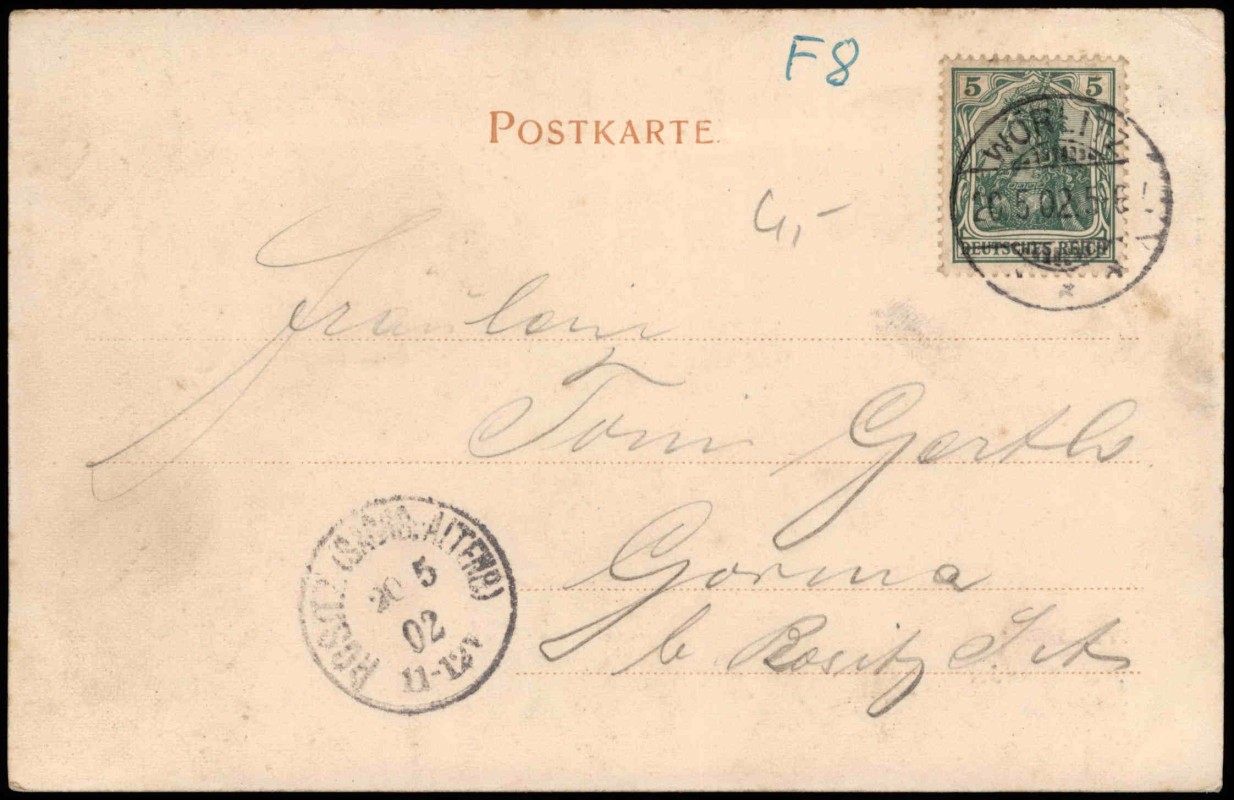 F8
POSTKARTE
5 5
DEUTSCHES REICH
WÖRLITZ
20.5.02.
4,-
Fräulein
Toni Gerth
Gorma
b Rositz S. A.
ROSITZ (SACHS. ALTENB)
20 5
02
11-12V